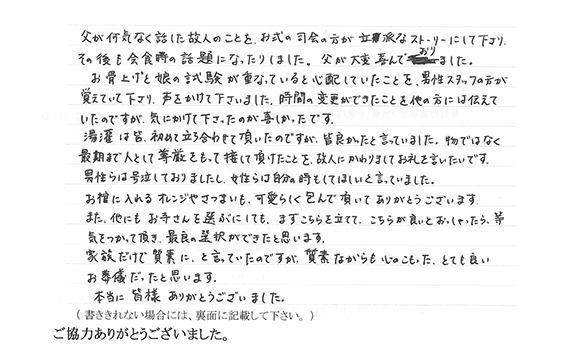 父が何気なく話した故人のことを、お式の司会の方が立派なストーリーにして下さり、
その後も会食時の話題になったりしました。父が大変喜んでおりました。
お骨上げと娘の試験が重なっていると心配していたことを、男性スタッフの方が
覚えていて下さり、声をかけて下さいました。時間の変更ができたことを他の方には伝えて
いたのですが、気にかけて下さったのが嬉しかったです。
湯灌は皆、初めて立ち合わせて頂いたのですが、皆良かったと言っていました。物ではなく
最期まで人として尊厳をもって接して頂けたことを、故人にかわりましてお礼を言いたいです。
男性らは号泣しておりましたし、女性らは自分の時もしてほしいと言っていました。
お棺に入れるオレンジやさつまいも、可愛らしく包んで頂いてありがとうございます。
また、他にもお寺さんを選ぶにしても、まずこちらを立てて、こちらが良いとおっしゃったら、等
気をつかって頂き、最良の選択ができたと思います。
家族だけで質素に、と言っていたのですが、質素ながらも心のこもった、とても良い
お葬儀だったと思います。
本当に皆様ありがとうございました。
(書ききれない場合には、裏面に記載して下さい。)
ご協力ありがとうございました。